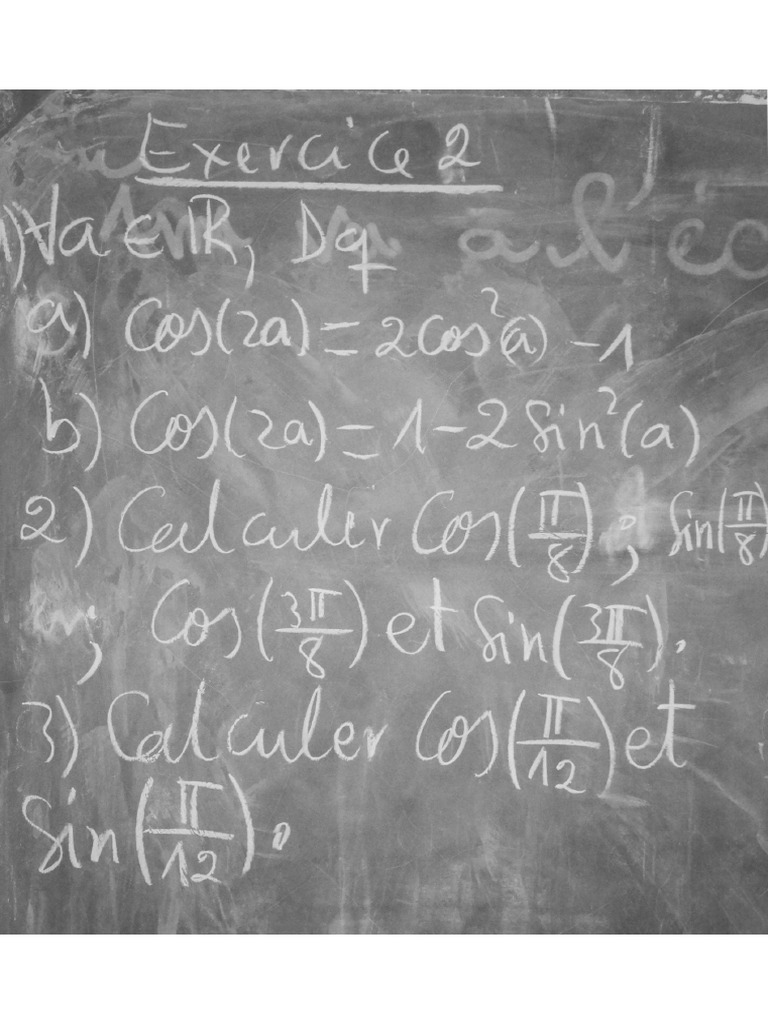 Exercice 2
1) ∀a ∈ ℝ, Dq
a) Cos(2a) = 2cos²(a) - 1
b) Cos(2a) = 1 - 2 Sin²(a)
2) Calculer Cos(π/8) ; Sin(π/8)
; Cos(3π/8) et Sin(3π/8).
3) Calculer Cos(π/12) et
Sin(π/12).